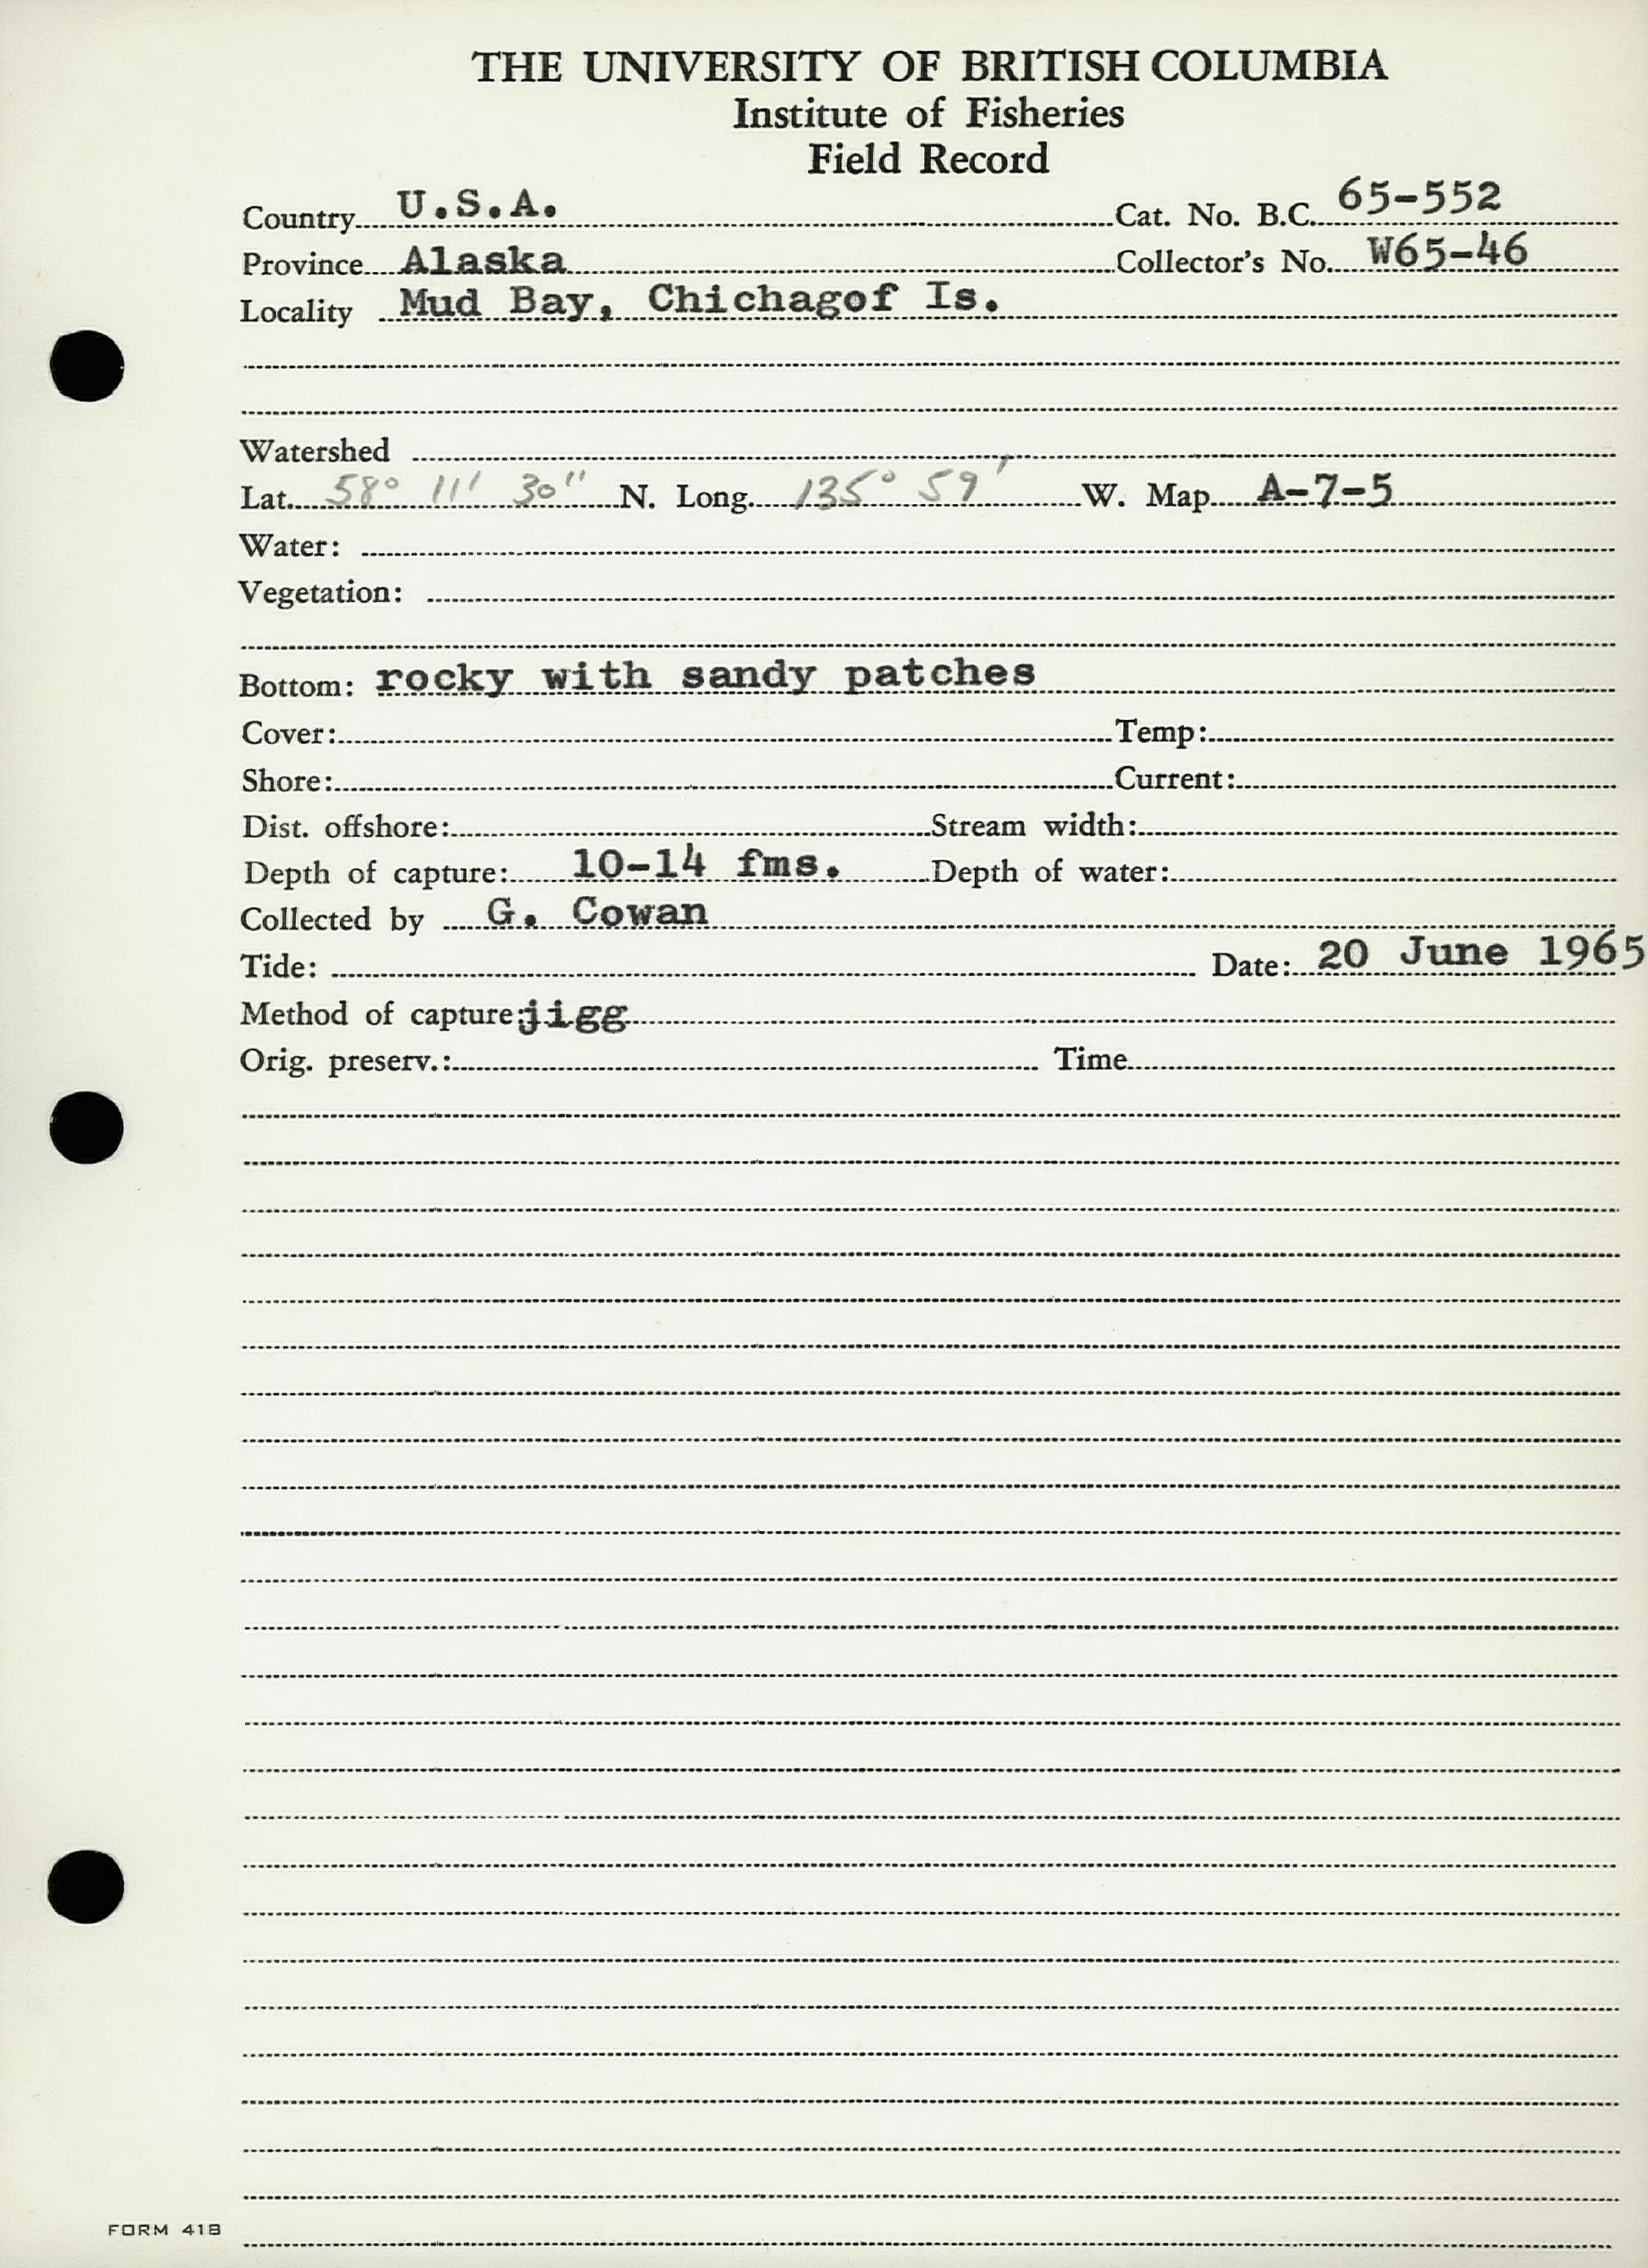 THE UNIVERSITY OF BRITISH COLUMBIA
Institute of Fisheries
Field Record
Country U.S.A. Cat. No. B.C. 65-552
Province Alaska Collector's No. W65-46
Locality Mud Bay, Chichagof Is.
Watershed
Lat. 58° 11' 30" N. Long. 135° 59' W. Map A-7-5
Water:
Vegetation:
Bottom: rocky with sandy patches
Cover: Temp:
Shore: Current:
Dist. offshore: Stream width:
Depth of capture: 10-14 fms. Depth of water:
Collected by G. Cowan
Tide: Date: 20 June 1965
Method of capture: jigg
Orig. preserv.: Time
FORM 41B